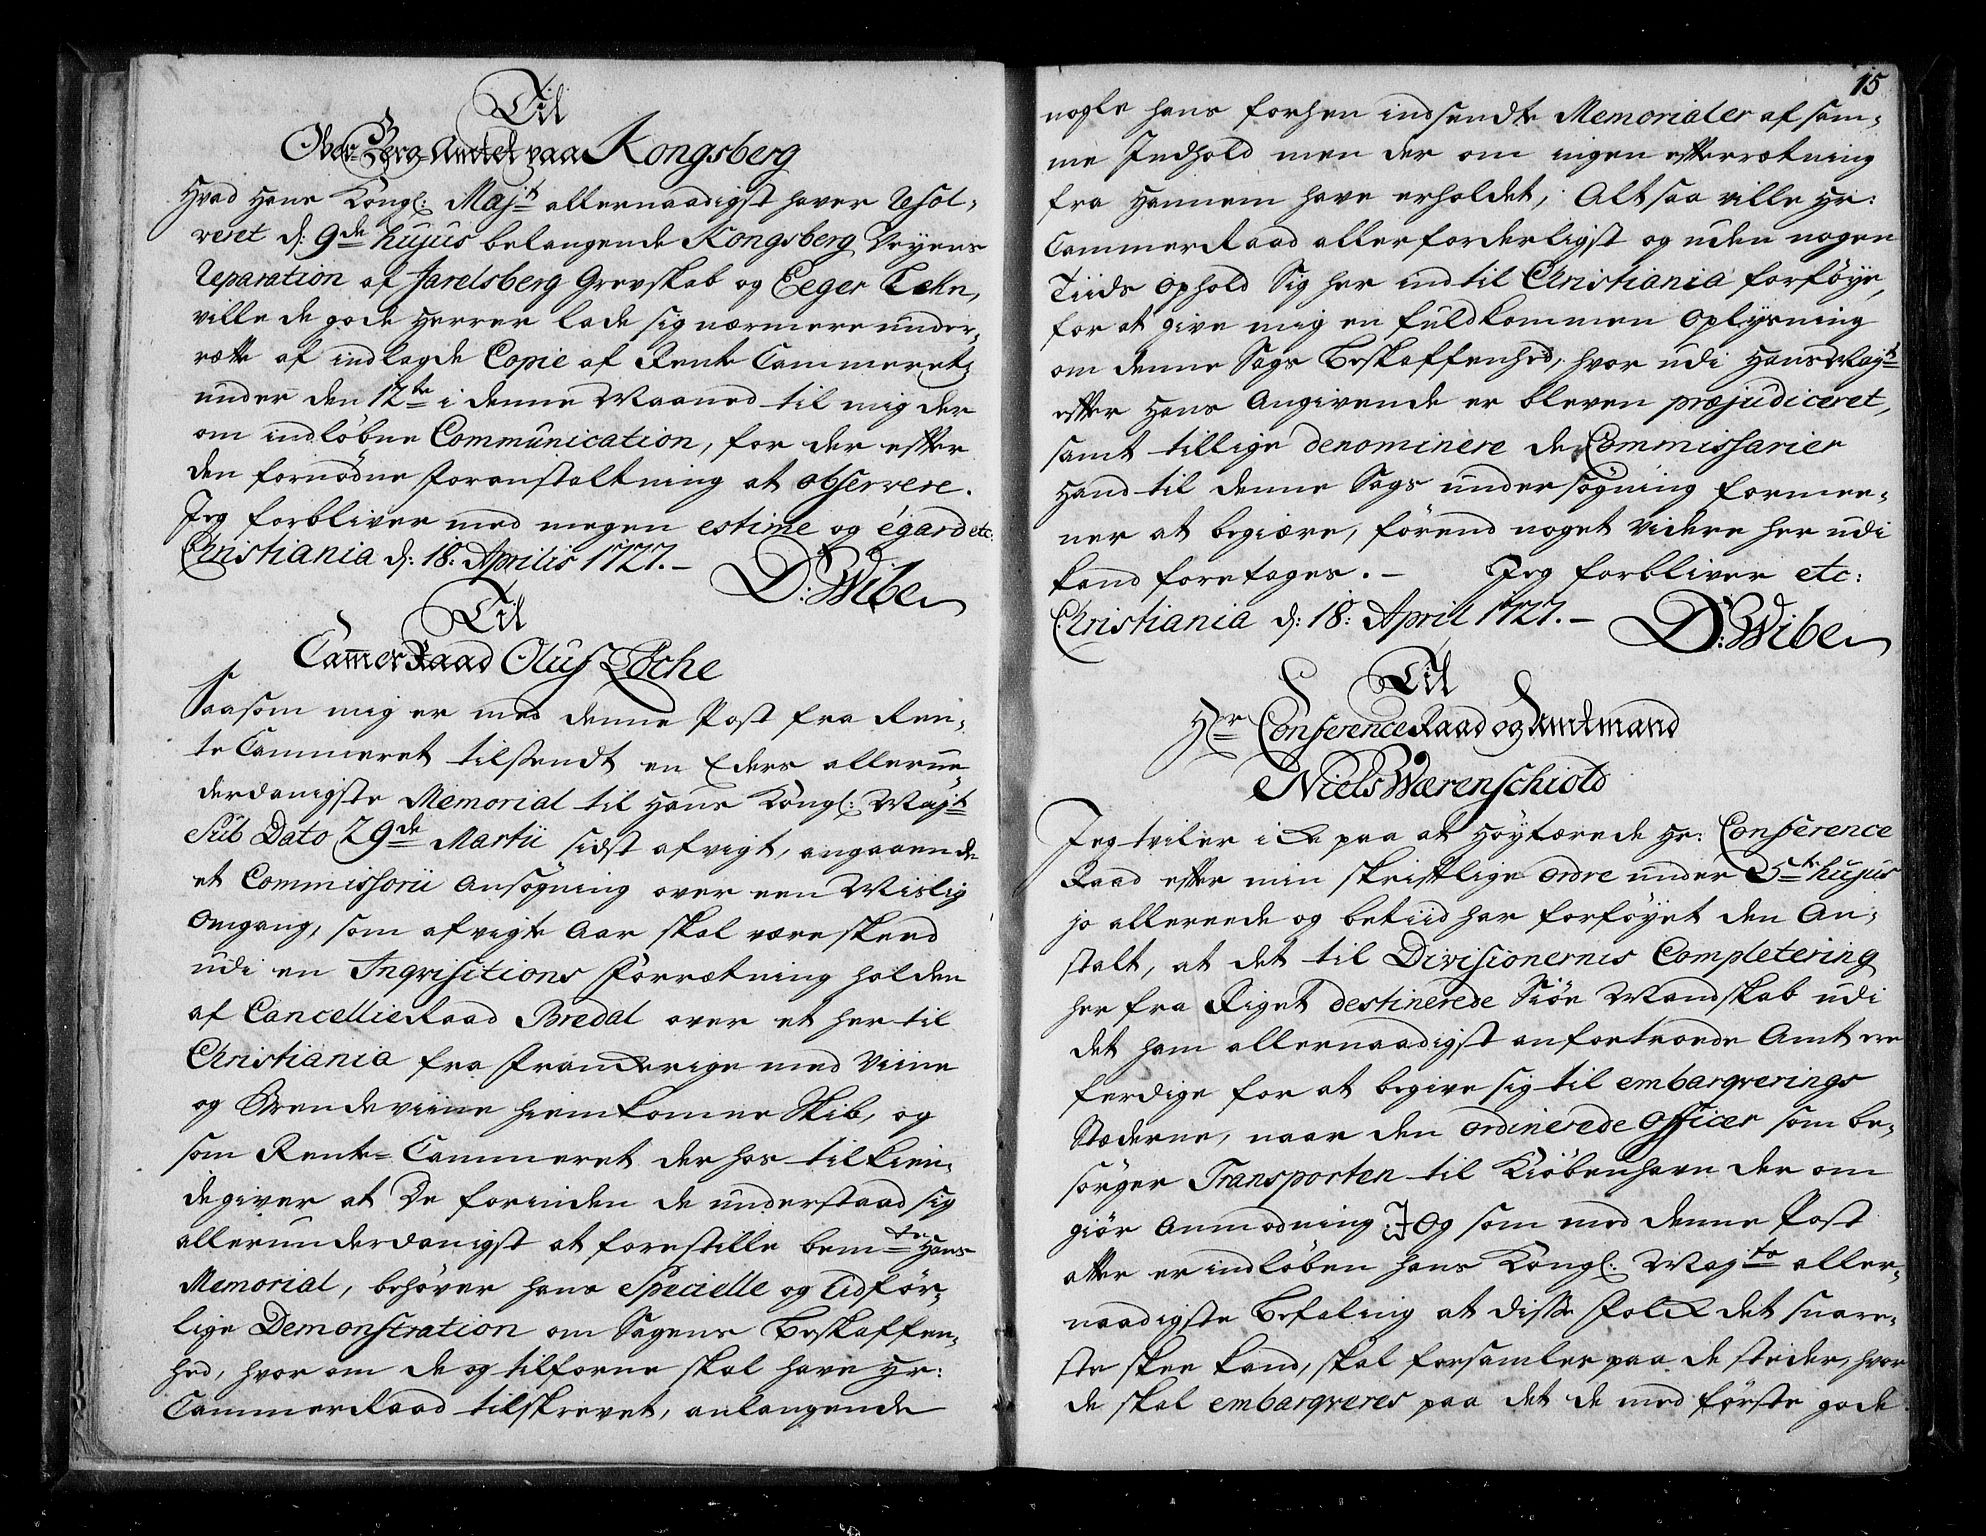 Til
Ober-Berg-Amtet paa Kongsberg
Hvad Hans Kongl: Majt allernaadigst haver Resol-
veret d: 9de hujus belangende Kongsberg Veyens
Reparation af Jarelsberg Grevskab og Eeger Lehn,
ville de gode Herrer lade sig nærmere under-
rætte af indlagde Copie af Rente Cammerets
under den 12te i denne Maaned til mig der
om indløbne Communication, for der efter
den fornødne Foranstaltning at observere.
Jeg forbliver med megen estime og égard etc:
Christiania d: 18. Aprilis 1727. -
D: Wibe
Til
CammerRaad Oluf Loche
Saasom mig er med denne Post fra Ren-
te Cammeret tilsendt en Eders allerun-
derdanigste Memorial til Hans Kongl: Majt
Sub Dato 29de Martii sidst afvigt, angaaende
et Commissorii Ansøgning over een Mislig
Omgang, som afvigte Aar skal være skeed
udi en Inqvisitions Forrætning holden
af CancellieRaad Bredal over et her til
Christiania fra Frankerige med Viine
og Brendeviine hiemkomne Skib, og
som Rente-Cammeret der hos tilkien-
degiver at De forinden de understaad sig
allerunderdanigst at forestille bemte Hans
Memorial, behøver hans Specielle og Udfør-
lige Demonstration om Sagens Beskaffen-
hed, hvor om de og tilforne skal have Hr:
CammerRaad tilskrevet, anlangende
15
nogle hans forhen indsendte Memorialer af sam-
me Indhold men der om ingen efterrætning
fra Hannem have erholdet; Altsaa ville Hr:
CammerRaad allerforderligst og uden nogen
Tiids Ophold Sig her ind til Christiania forføye,
for at give mig en fuldkommen Oplysning
om denne Sags Beskaffenhed, hvor udi Hans Majt
efter Hans Angivende er bleven præjudiceret,
samt tillige denominere de Commissarier
Hand til denne Sags undersøgning formee-
ner at begiære, førend noget videre her udi
kand foretages. - Jeg forbliver etc:
Christiania d: 18: April 1727. -
D: Wibe
Til
Hr Conference Raad og Amtmand
Niels Wærenschiold
Jeg tviler icke paa at Høytærede Hr: Conference
Raad efter min skriftlige Ordre under 5te hujus
jo allereede og betiid har forføyet den An-
stalt, at det til Divisionernis Completering
her fra Riget destinerede Siøe Mandskab udi
det ham allernaadigst anfortroede Amt ere
ferdige for at begive sig til embarqverings
Stæderne, naar den ordinerede Officer som be-
sørger Transporten til Kiøbenhavn der om
giør Anmodning; Og som med denne Post
atter er indløben hans Kongl: Majts aller-
naadigste Befaling at disse Folck det snare-
ste skee kand, skal forsamles paa de steder, hvor
de skal embarqveres paa det de med første gode